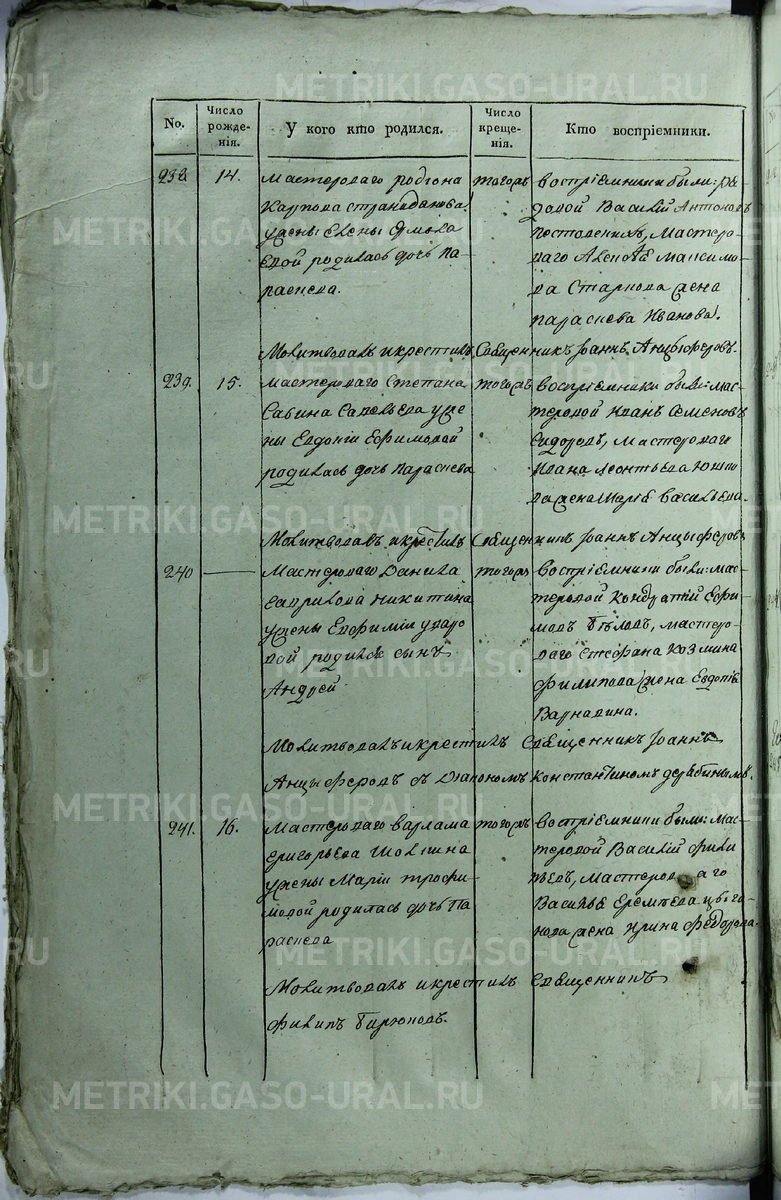 No.
Число рожде-нія.
У кого кто родился.
Число креще-нія.
Кто воспріемники.
238
14.
Мастероваго Родіона
Карпова
у жены Елены
вой родилась дочь Па-
расковa.
тогожъ
воспріемники были: ря-
довой Василій Антоновъ
Мастеро-
ваго Алексѣя Максимо-
ва Старкова жена
Параскева Иванова.
Молитвовалъ и крестилъ Священникъ Іоаннъ Анцыферовъ.
239.
15.
Мастероваго Степана
Савина Савельева у же
ны Евдокіи Ефимовой
родилась дочь Параскева
тогожъ
воспріемники были: мас-
теровой Иванъ Семеновъ
Сидоровъ, Мастероваго
Ивана Леонтьева
жена Марія Васильева.
Молитвовалъ и крестилъ Священникъ Іоаннъ Анцыферовъ
240
Мастероваго Данила
Гаврилова Никитина
у жены Евфиміи
вой родился сынъ
Андрей.
тогожъ
воспріемники были: мас-
теровой Кондратій Ефи-
мовъ Бѣловъ, мастеро-
ваго Стефана Козмина
Филипова жена Евдокія
Варнавина.
Молитвовалъ и крестилъ Священникъ Іоаннъ
Анцыферовъ съ Діакономъ Константиномъ Дерябинымъ.
241.
16.
Мастероваго Варлама
Григорьева
у жены Маріи Трофи-
мовой родилась дочь Па
раскева
тогожъ
воспріемники были: Мас-
теровой Василій Фили
пьевъ, Мастероваго
Василья Еремѣева Цыга-
нова жена Ирина Федорова.
Молитвовалъ и крестилъ Священникъ
Филипъ Бирюковъ.
METRIKI.GASO-URAL.RU